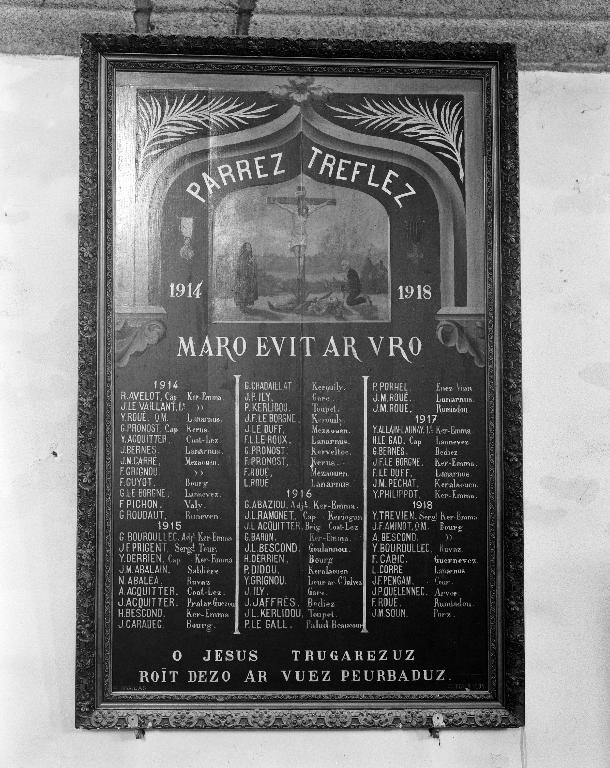 PARREZ TREFLEZ
1914 1918
MARO EVIT AR VRO
1914
R. AVELOT, Cap Ker-Emma
J. LE VAILLANT, Lt »
Y. ROUÉ. Q.M. Lanarnus.
G. PRONOST, Cap Kerus.
Y. ACQUITTER. Coat-Lez.
J. BERNES. Lanarnus.
J.M. CARRÉ. Mezaouen.
F. GRIGNOU. »
F. GUYOT. Bourg
G. LE BORGNE. Lanevez.
F. PICHON. Valy.
G. ROUDAUT. Runeven.
1915
C. BOUROULLEC. Adjt Ker-Emma
J.F. PRIGENT. Sergt Teur.
Y. DERRIEN, Cap Ker-Emma
J.M. ABALAIN.
N. ABALÉA. Ruvaz
A. ACQUITTER. Coat-Lez.
J. ACQUITTER.
H. BESCOND. Ker-Emma
J. CARADEC. Bourg.
G. CHADAILLAT Kerguily.
J.P. ILY. Gare.
P. KERLIDOU. Toupet.
J.F. LE BORGNE. Kerouly.
J. LE DUFF. Mezaouen.
F.L. LE ROUX. Lanarnus.
G. PRONOST. Kerveltoc.
F. PRONOST. Kerus.
F. ROUÉ. Mezaouen.
L. ROUÉ. Lanarnus
1916
G. ABAZIOU, Adjt. Ker-Emma.
J.L. RAMONET. Cap
J.L. ACQUITTER. Brig Coat-Lez
G. BARON. Ker-Emma.
J.L. BESCOND. Goulannou.
H. DERRIEN. Bourg
P. DIDOU. Keralaouen
Y. GRIGNOU.
J. ILY. Gare.
J. JAFFRÈS. Bediez
J.L. KERLIDOU. Toupet
P. LE GALL. Palud-Beauceour
P. PORHEL.
J.M. ROUÉ. Lanarnus.
J.M. ROUÉ. Rumiadou.
1917
Y. ALLAIN-LAUNAY. Lt Ker-Emma.
H. LE GAD. Cap Lannevez.
G. BERNES. Bediez
J.F. LE BORGNE. Ker-Emma.
F. LE DUFF. Lanarnus
J.M. PECHAT. Keralaouen.
Y. PHILIPPOT. Ker-Emma.
1918
Y. TREVIEN. Sergt Ker-Emma
J.F. AMINOT, Q.M. Bourg
A. BESCOND. »
Y. BOUROULLEC. Ruvaz
F. CABIC. Guernevez.
L. CORRE. Lanarnus
J.F. PENGAM.
J.P. QUELENNEC. Arvor.
F. ROUÉ. Rumiadou.
J.M. SOUN. Porz.
O JESUS TRUGAREZUZ
ROÏT DEZO AR VUEZ PEURBADUZ.